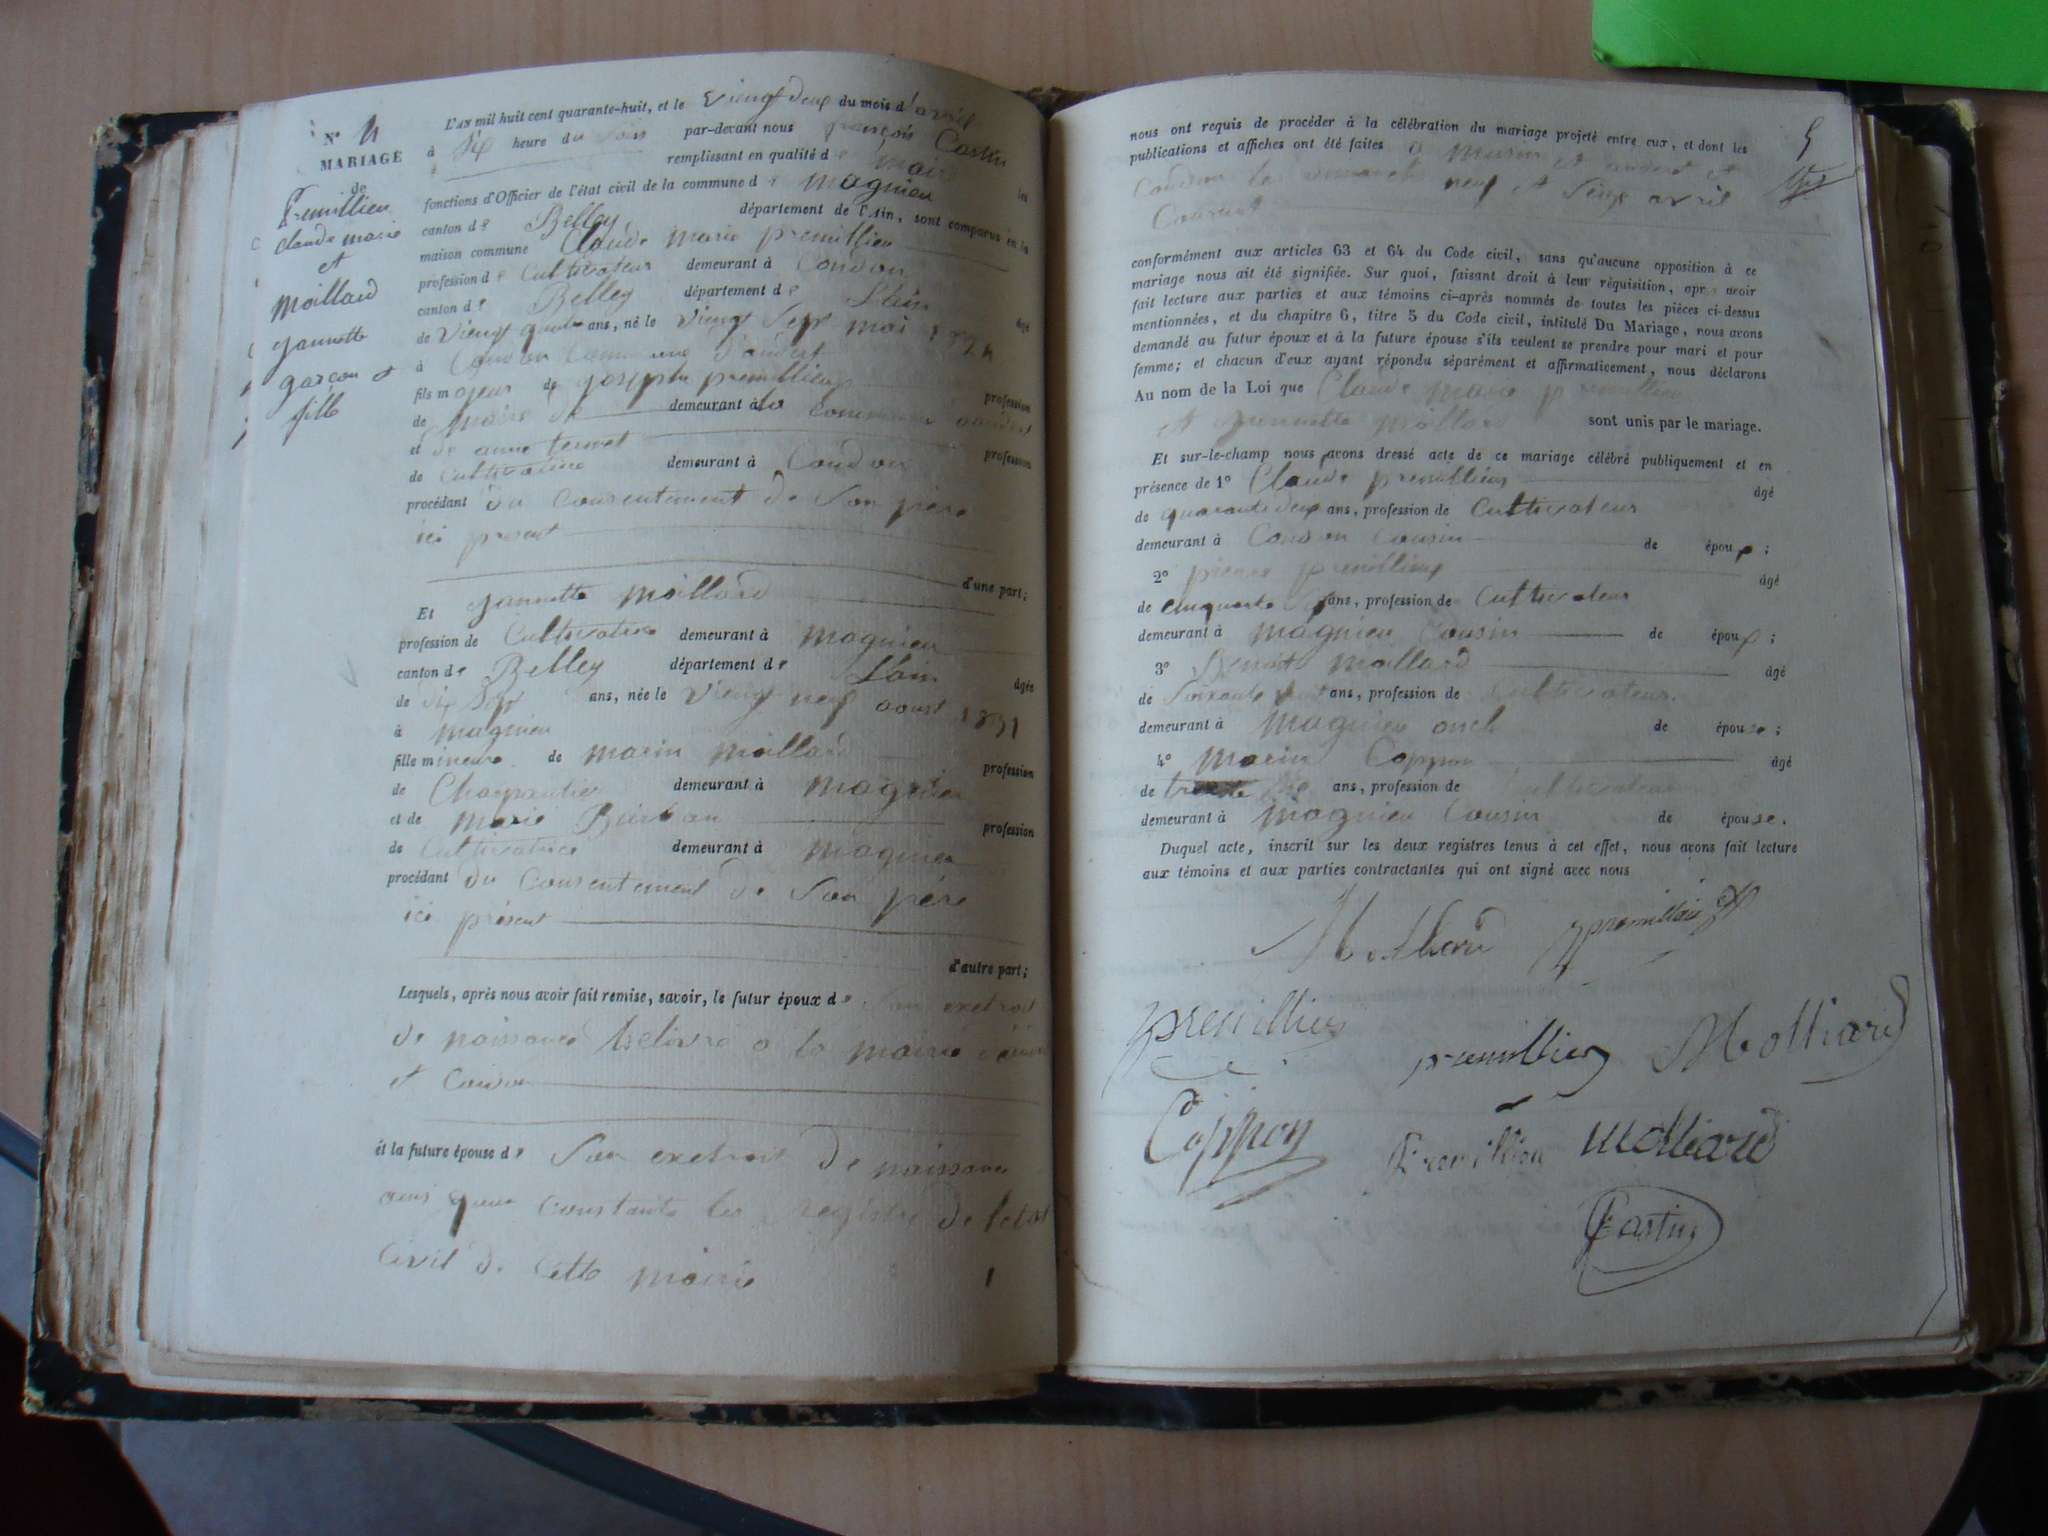 N° 4
MARIAGE
de
Premillieu
claude marie
et
Moillard
jannette
garçon et
fille
L'AN mil huit cent quarante-huit, et le viengt deux du mois d'avril
à six heure du soir par-devant nous françois Castin
remplissant en qualité de maire les
fonctions d'Officier de l'état civil de la commune de magnieu
canton de Belley département de l'Ain, sont comparus en la
maison commune Claude marie premillieu
profession de Cultivateur demeurant à Condon
canton de Belley département de L'ain âgé
de vient quatre ans, né le viengt sept mai 1824
à Condon Commune d'andert
fils majeur de joseph premillieu profession
de maire de demeurant à la commune d'andert
et de anne profession
de Cultivatrice demeurant à Condon
procédant du consentement de son père
ici présent
d'une part;
Et jannette moillard
profession de Cultivatrice demeurant à magnieu
canton de Belley département de L'ain âgée
de dix sept ans, née le viengt neuf aoust 1831
à magnieu
fille mineure de marin moillard profession
de Charpentier demeurant à magnieu
et de marie profession
de Cultivatrice demeurant à magnieu
procédant du consentement de son père
ici présent
d'autre part;
Lesquels, après nous avoir fait remise, savoir, le futur époux de son extrait
de naissance delivré a la mairie
et Condon
et la future épouse de son extrait de naissance
constaté les registre de l'etat
civil de cette mairie
nous ont requis de procéder à la célébration du mariage projeté entre eux, et dont les
publications et affiches ont été faites a et andert et
Condon les dimanche neuf et seize avril
Courant
5
conformément aux articles 63 et 64 du Code civil, sans qu'aucune opposition à ce
mariage nous ait été signifiée. Sur quoi, faisant droit à leur réquisition, après avoir
fait lecture aux parties et aux témoins ci-après nommés de toutes les pièces ci-dessus
mentionnées, et du chapitre 6, titre 5 du Code civil, intitulé Du Mariage, nous avons
demandé au futur époux et à la future épouse s'ils veulent se prendre pour mari et pour
femme; et chacun d'eux ayant répondu séparément et affirmativement, nous déclarons
Au nom de la Loi que Claude marie premillieu
et jannette moillard sont unis par le mariage.
Et sur-le-champ nous avons dressé acte de ce mariage célébré publiquement et en
présence de 1° Claude premillieu âgé
de quarante deux ans, profession de Cultivateur
demeurant à Condon cousin de époux;
2° pierre premillieu âgé
de cinquante ans, profession de Cultivateur
demeurant à magnieu cousin de époux;
3° Benoit moillard âgé
de soixante ans, profession de cultivateur
demeurant à magnieu oncle de épouse;
4° marin Coppon âgé
de trente ans, profession de Cultivateur
demeurant à magnieu Cousin de épouse.
Duquel acte, inscrit sur les deux registres tenus à cet effet, nous avons fait lecture
aux témoins et aux parties contractantes qui ont signé avec nous
Molliard premillieu
premillieu premillieu Molliard
Coppon Premillieu Molliard
Castin